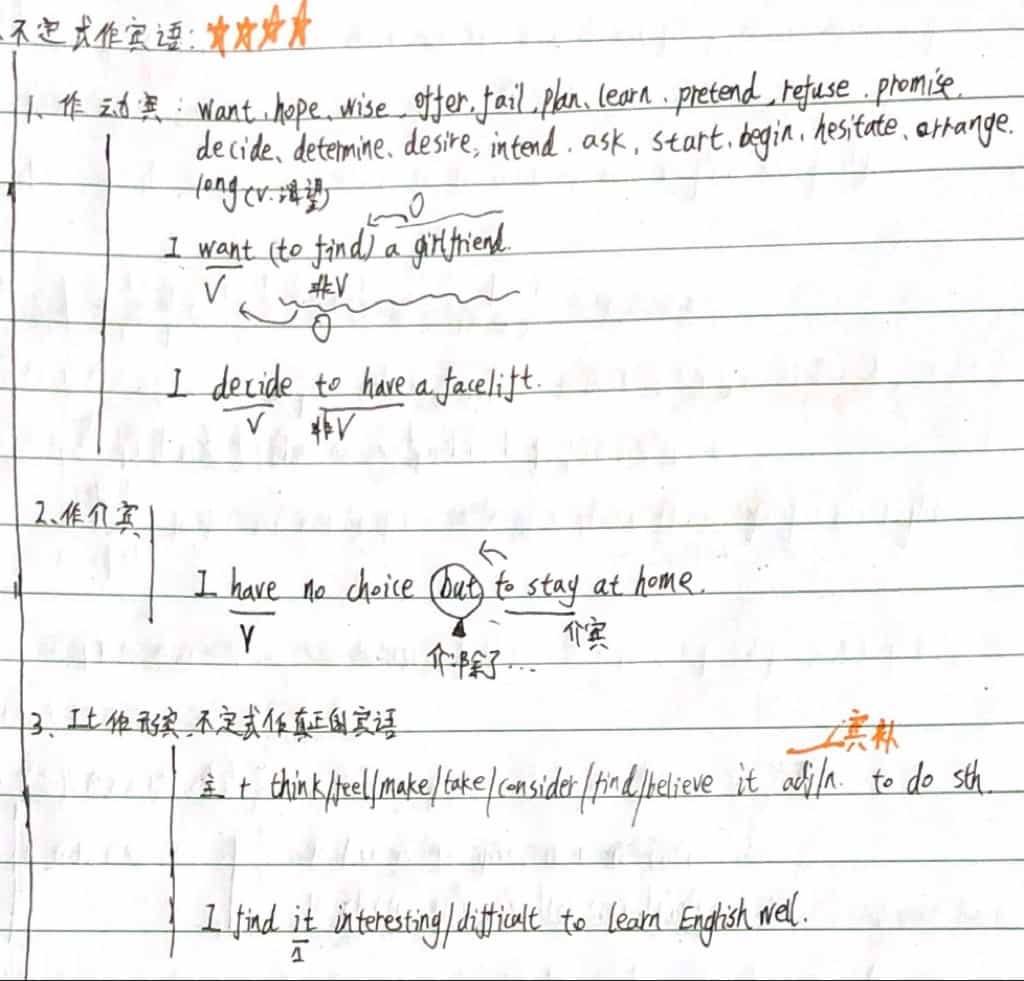 不定式作宾语: ☆☆☆☆
1. 作动宾: want, hope, wise, offer, fail, plan, learn, pretend, refuse, promise,
decide, determine, desire, intend, ask, start, begin, hesitate, arrange.
long (v. 渴望)
O
I want (to find) a girlfriend.
V 非V
O
I decide to have a facelift.
V 非V
2. 作介宾
I have no choice but to stay at home.
V 介宾
介:除了...
3. It 作形宾, 不定式作真正的宾语
宾补
主 + think/feel/make/take/consider/find/believe it adj/n. to do sth.
I find it interesting/difficult to learn English well.